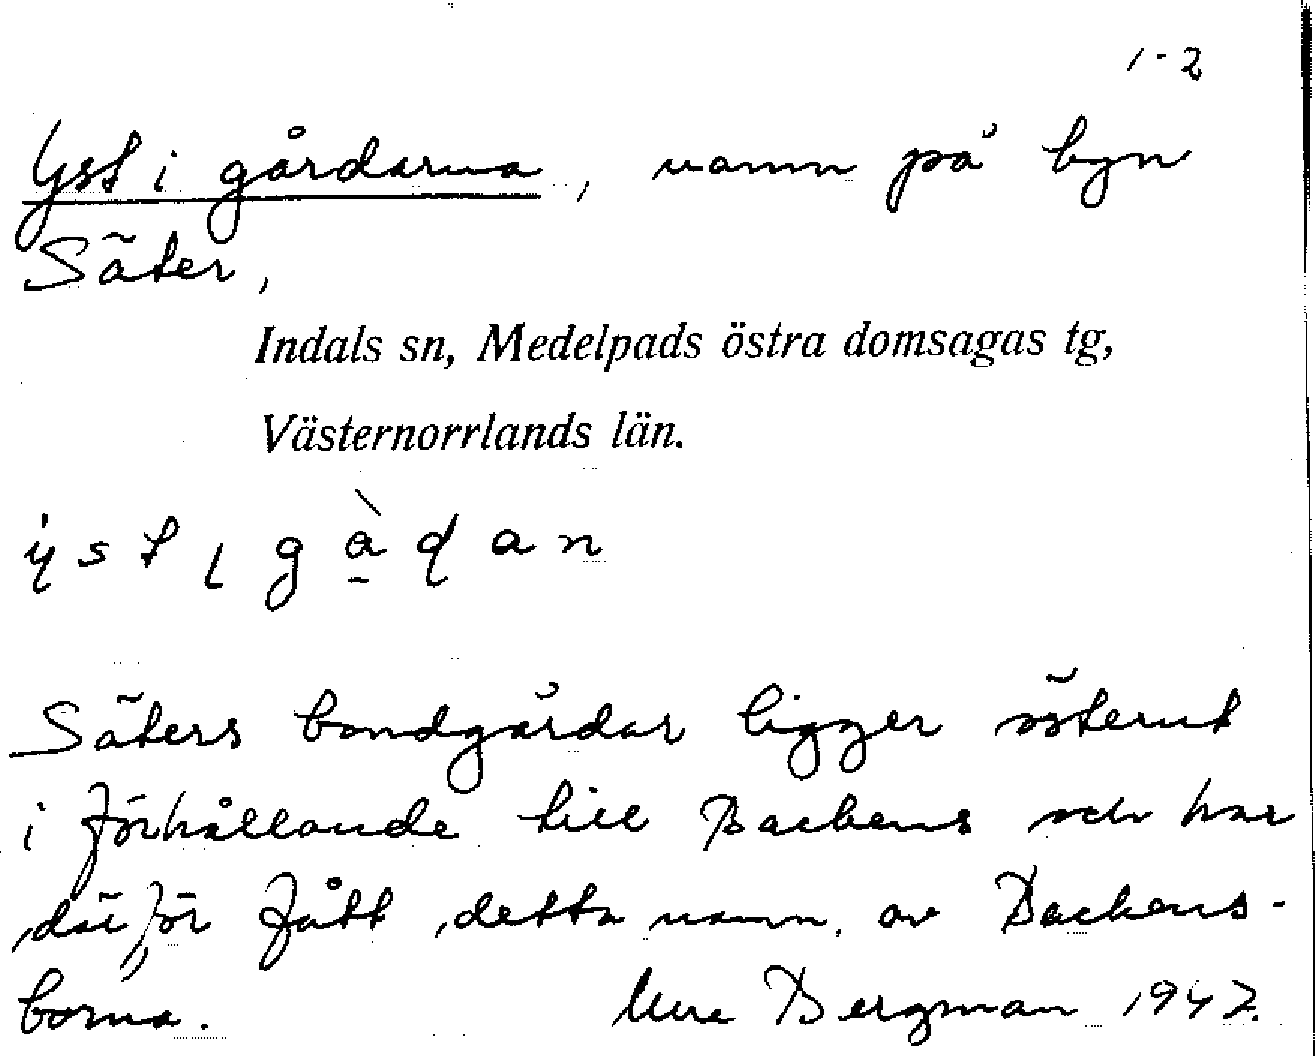 1-2
Yst i gårdarna, namn på byn
Säter,
Indals sn, Medelpads östra domsagas tg,
Västernorrlands län.
ẏst ɩ gà̱ɖan
Säters bondgårdar ligger österut
i förhållande till Backens och har
därför fått detta namn av Backens-
borna.
Bergman 1947.